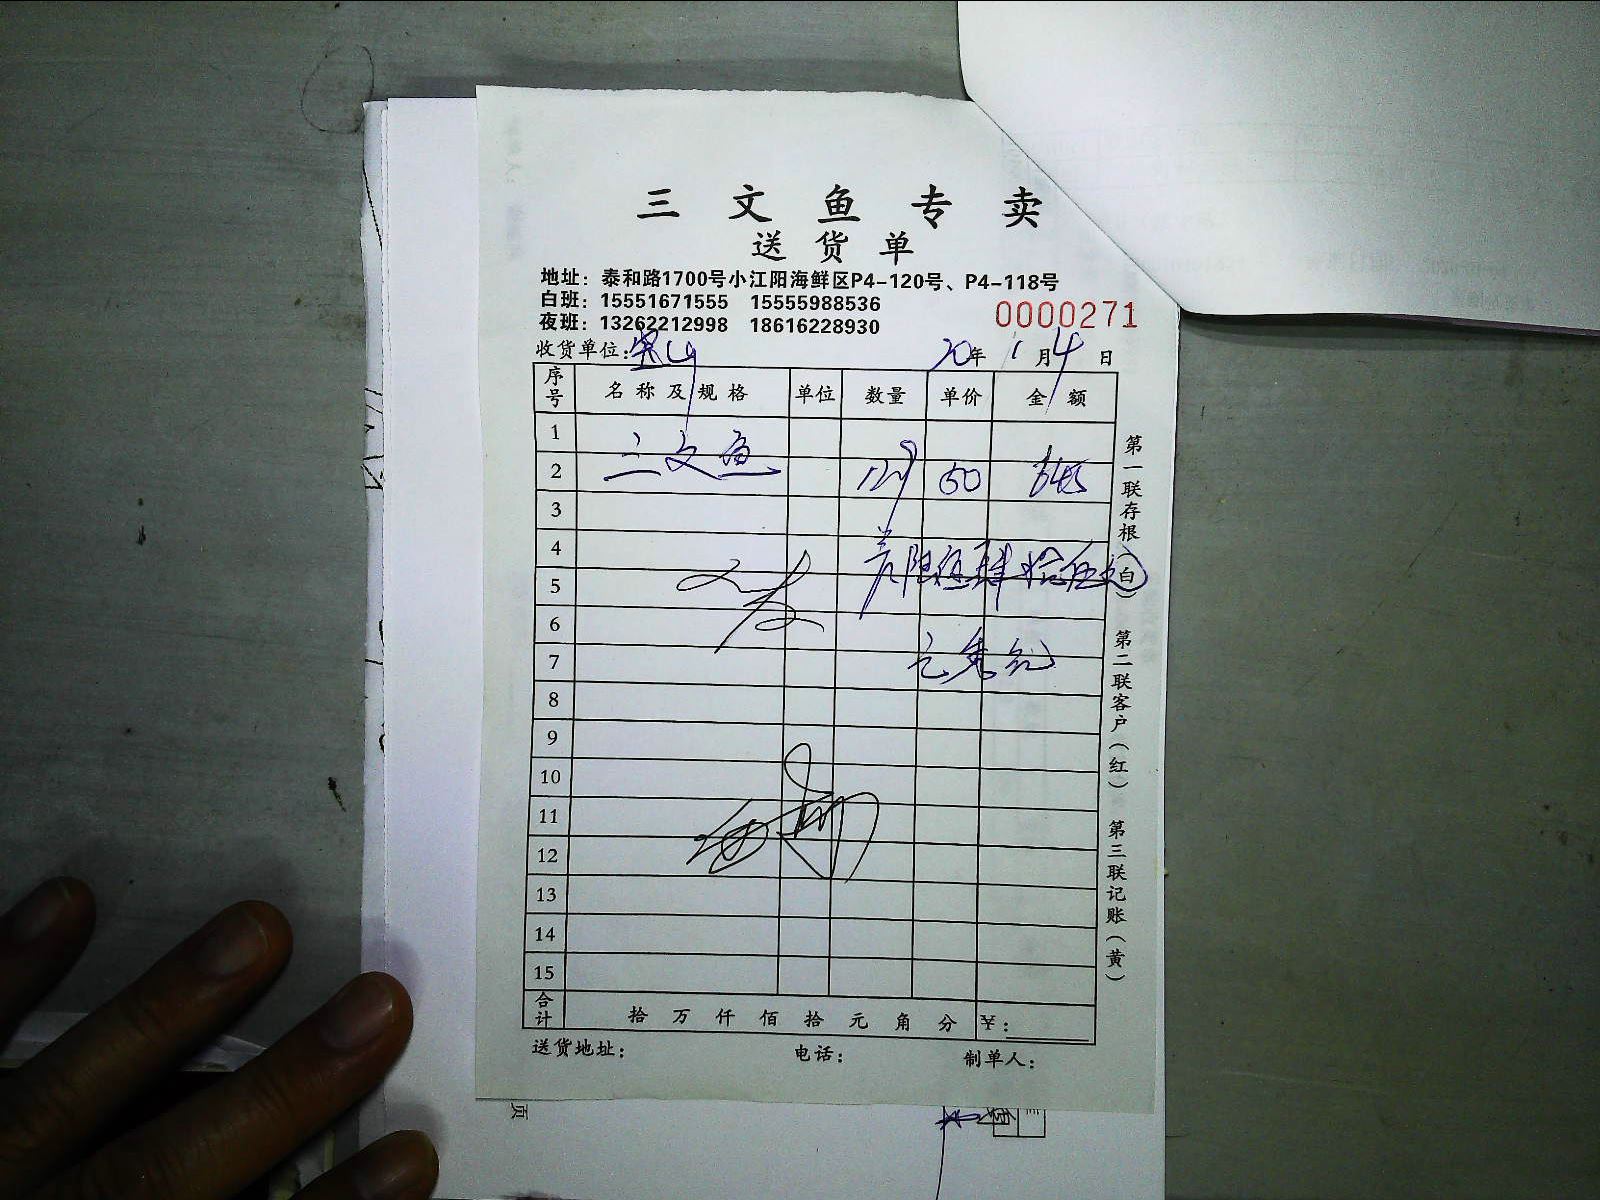 三文鱼专卖
送货单
地址：泰和路1700号小江阳海鲜区P4-120号、P4-118号
白班：15551671555 15555988536
夜班：13262212998 18616228930
0000271
收货单位：宝山 20年 1月4日
序号 名称及规格 单位 数量 单价 金额
1
2 三文鱼 129 50 645
3
4
5
6
7
8
9
10
11
12
13
14
15
合计 拾 万 仟 佰 拾 元 角 分 ￥：
送货地址： 电话： 制单人：
第一联存根（白） 第二联客户（红） 第三联记账（黄）
页